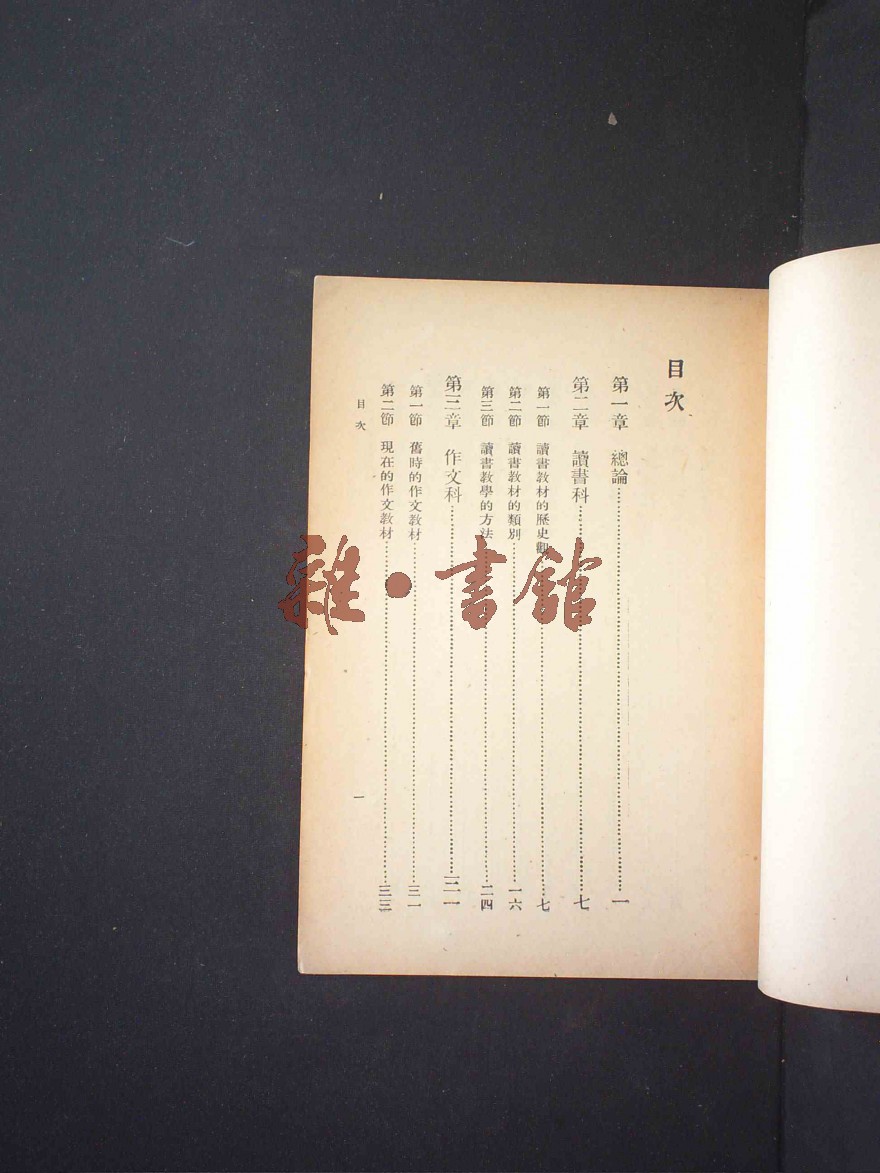 目次
第一章　總論……………一
第二章　讀書科……………七
第一節　讀書教材的歷史觀……………七
第二節　讀書教材的類別……………一六
第三節　讀書教學的方法……………二四
第三章　作文科……………三一
第一節　舊時的作文教材……………三一
第二節　現在的作文教材……………三三
目次
一
雜·書館